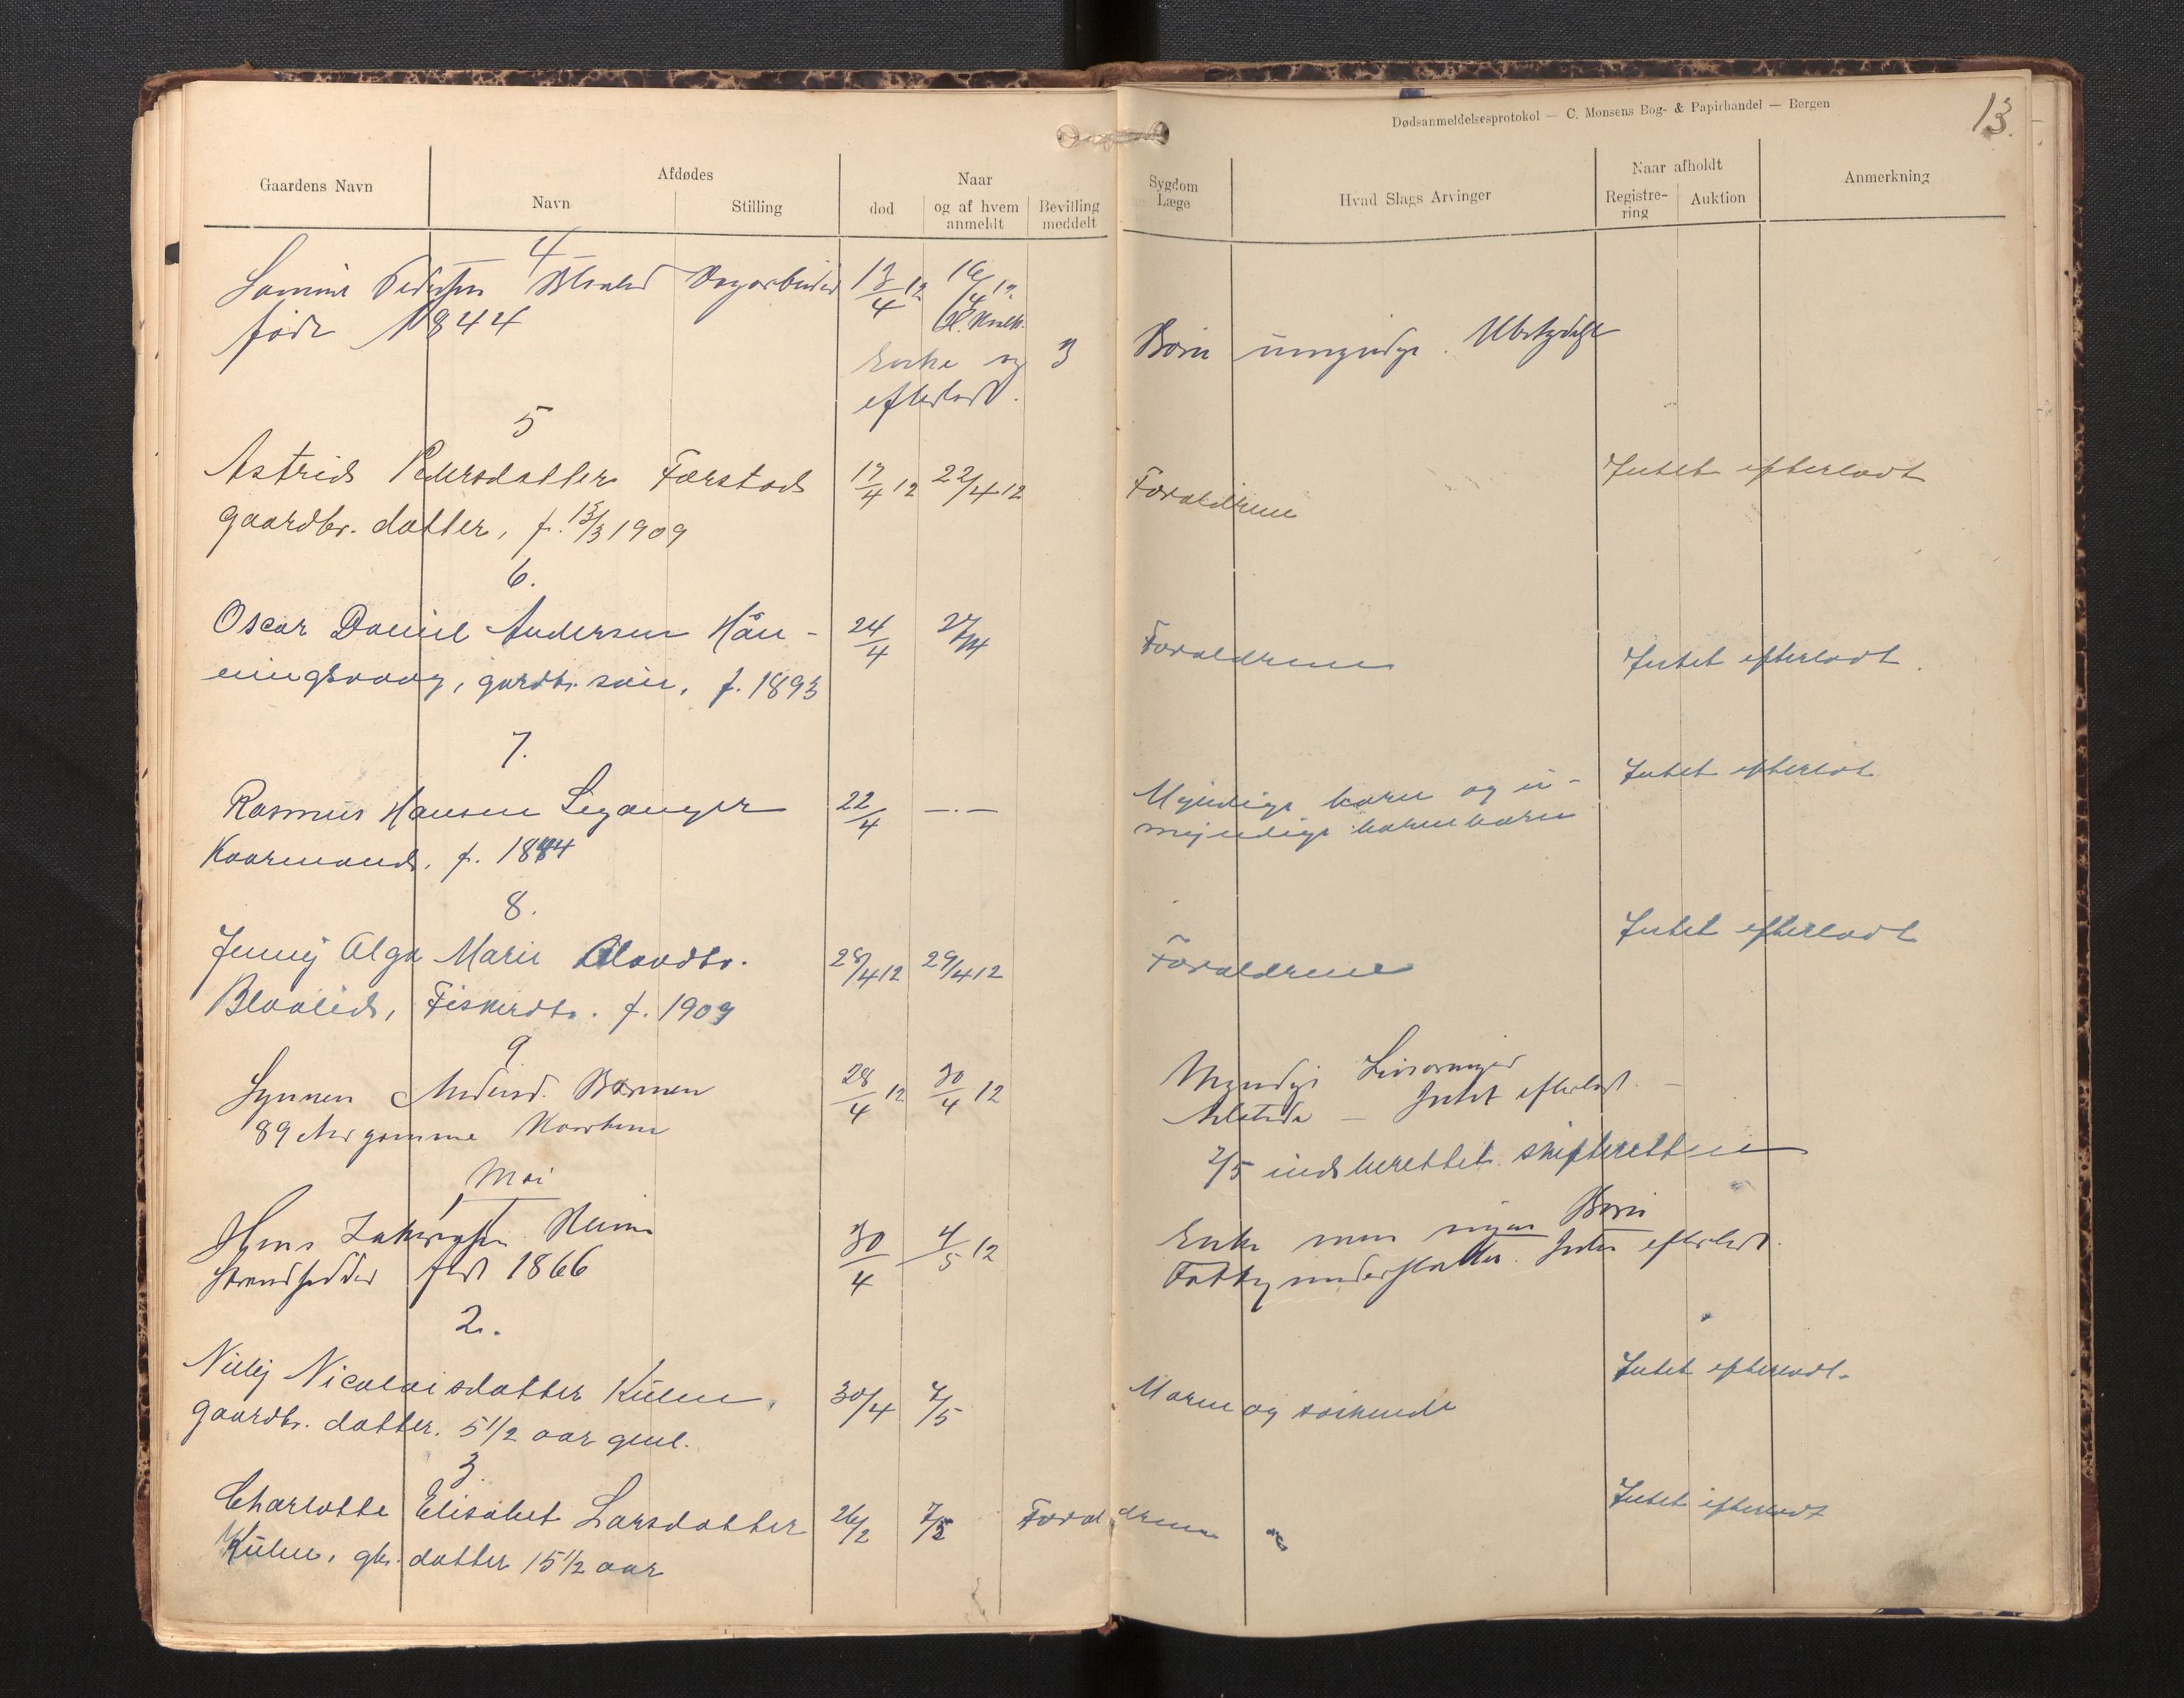 Dødsanmeldelsesprotokol — C. Monsens Bog- & Papirhandel — Bergen
13.
Gaardens Navn
Afdødes
Navn
Stilling
Naar
død
og af hvem anmeldt
Bevilling meddelt
Sygdom Læge
Hvad Slags Arvinger
Naar afholdt
Registre-ring
Auktion
Anmerkning
4
13/4 12 16/4 12
født 1844
Enke og 3 Børn umyndige. Ubetydeligt
efterladt.
5
Astrid Pedersdatter Færstad 17/4 12 22/4 12 Forældrene Intet efterladt
gaardbr. datter, f. 13/3 1909
6.
Oscar Daniel Andersen Hån- 24/4 27/4 Forældrene Intet efterladt.
ningsvaag, gardbr. søn, f. 1893
7.
Rasmus Hansen Leganger 22/4 —.— Myndige børn og u- Intet efterlat
Kaarmand, f. 1844 myndige barnebarn
8.
Jenny Olga Marie Olavdtr. 28/4 12 29/4 12 Forældrene Intet efterladt
Blaalid, Fiskerdtr. f. 1909
9
Synnev Andersd. 28/4 12 30/4 12 Myndige Livsarvinger
89 Aar gamme Intet efterladt. —
2/5 indberettet skifteretten
Mai
1
Hans 30/4 4/5 12 Enke men ingen Børn
Strandsidder født 1866 Fattigunderstøttet. Intet efterladt.
2.
Nilly Nicolaisdatter Kulen, 30/4 7/5 Moren og søskende Intet efterladt.
gaardbr. datter. 5 1/2 aar gml.
3.
Charlotte Elisabet Larsdatter 26/2 7/5 Forældrene Intet efterladt
Kulen, gbr. datter 15 1/2 aar